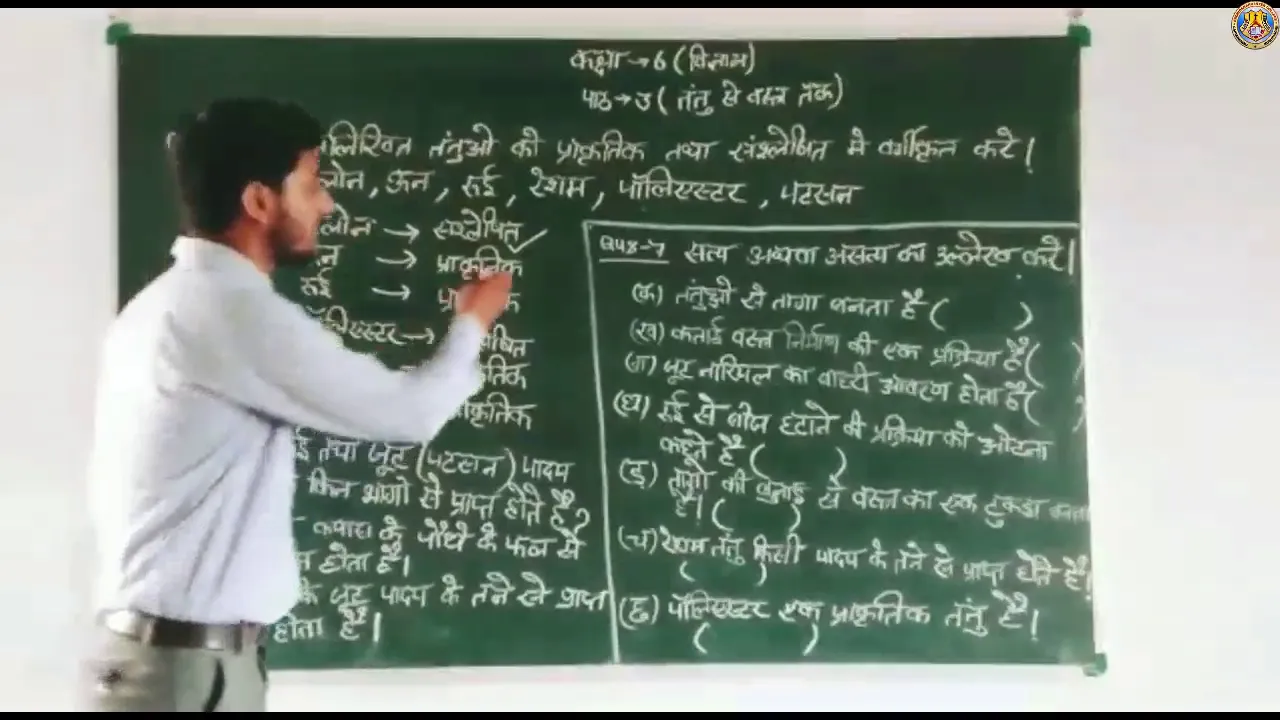 कक्षा → 6 (विज्ञान)
पाठ → 3 (तंतु से वस्त्र तक)
लिखित तंतुओ को प्राकृतिक तथा संश्लेषित मे वर्गीकृत करे।
लोन, ऊन, रूई, रेशम, पॉलिएस्टर, पटसन
लोन → संश्लेषित ✓
न → प्राकृतिक
रूई → प्रा क
पॉलिएस्टर → षित
तिक
प्राकृतिक
ई तथा जूट (पटसन) पादप
किन भागो से प्राप्त होते है?
कपास के पौधे के फल से
त होता है।
के जूट पादप के तने से प्राप्त
होता है।
सत्य अथवा असत्य का उल्लेख करे।
(क) तंतुओ से तागा बनता है ( )
(ख) कताई वस्त्र निर्माण की एक प्रक्रिया है ( )
(ग) जूट नारियल का बाहरी आवरण होता है ( )
(घ) रूई से बीज हटाने की प्रक्रिया को ओटना
कहते है ( )
(ड़) तागो की बुनाई से वस्त्र का एक टुकडा बनता
है। ( )
(च) रेशम तंतु किसी पादप के तने से प्राप्त होते है।
( )
(छ) पॉलिएस्टर एक प्राकृतिक तंतु है।
( )